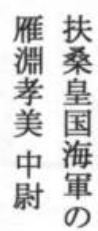 扶桑皇国海軍の
雁淵孝美 中尉